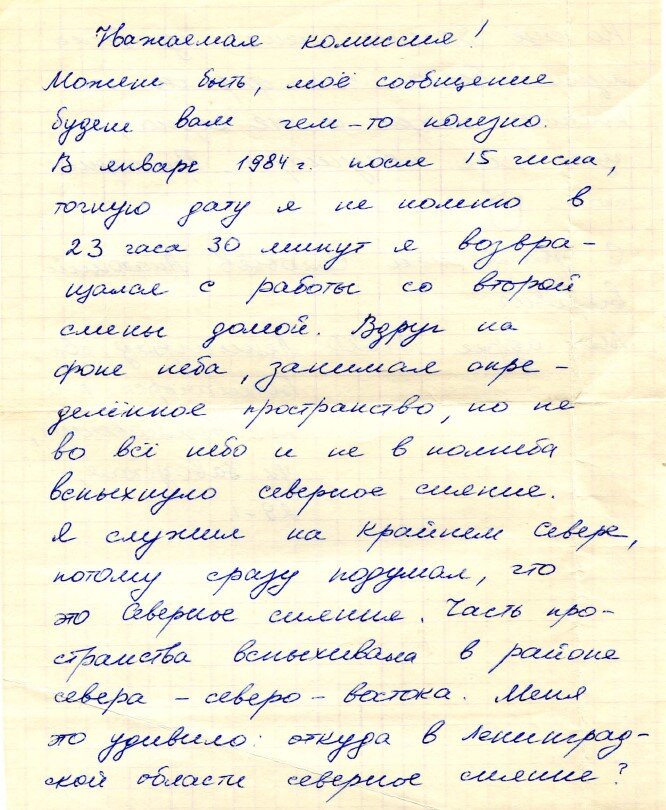 Уважаемая комиссия!
Может быть, моё сообщение
будет вам чем-то полезно.
В январе 1984 г. после 15 числа,
точную дату я не помню в
23 часа 30 минут я возвра-
щался с работы со второй
смены домой. Вдруг на
фоне неба, занимая опре-
делённое пространство, но не
во всё небо и не в полнеба
вспыхнуло северное сияние.
Я служил на Крайнем Севере,
потому сразу подумал, что
это Северное сияние. Часть про-
странства вспыхивала в районе
севера - северо-востока. Меня
это удивило: откуда в Ленинград-
ской области северное сияние?